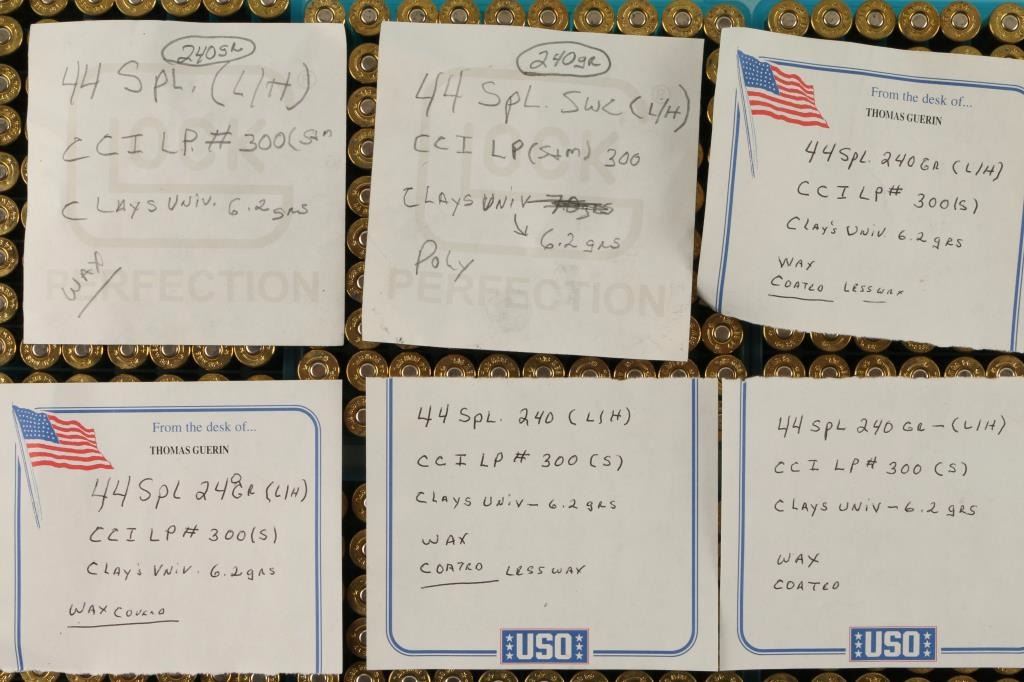 240gr
44 SPL. (L/H)
CCI LP # 300 (Stn
CLAYS UNIV. 6.2 grs
WAX
GLOCK
PERFECTION
240gr
44 SPL. SWC (L/H)
CCI LP (Stm) 300
CLAYS UNIV
6.2 grs
POLY
GLOCK
PERFECTION
From the desk of...
THOMAS GUERIN
44 SPL. 240 GR (L/H)
CCI LP# 300 (S)
CLAY'S UNIV. 6.2 grs
WAX
COATED LESS WAX
From the desk of...
THOMAS GUERIN
44 SPL 240 GR (L/H)
CCI LP# 300 (S)
CLAY'S UNIV. 6.2 grs
WAX
44 SPL. 240 (L/H)
CCI LP # 300 (S)
CLAYS UNIV - 6.2 grs
WAX
COATED LESS WAX
USO
44 SPL 240 GR - (L/H)
CCI LP# 300 (S)
CLAYS UNIV - 6.2 grs
WAX
COATED
USO